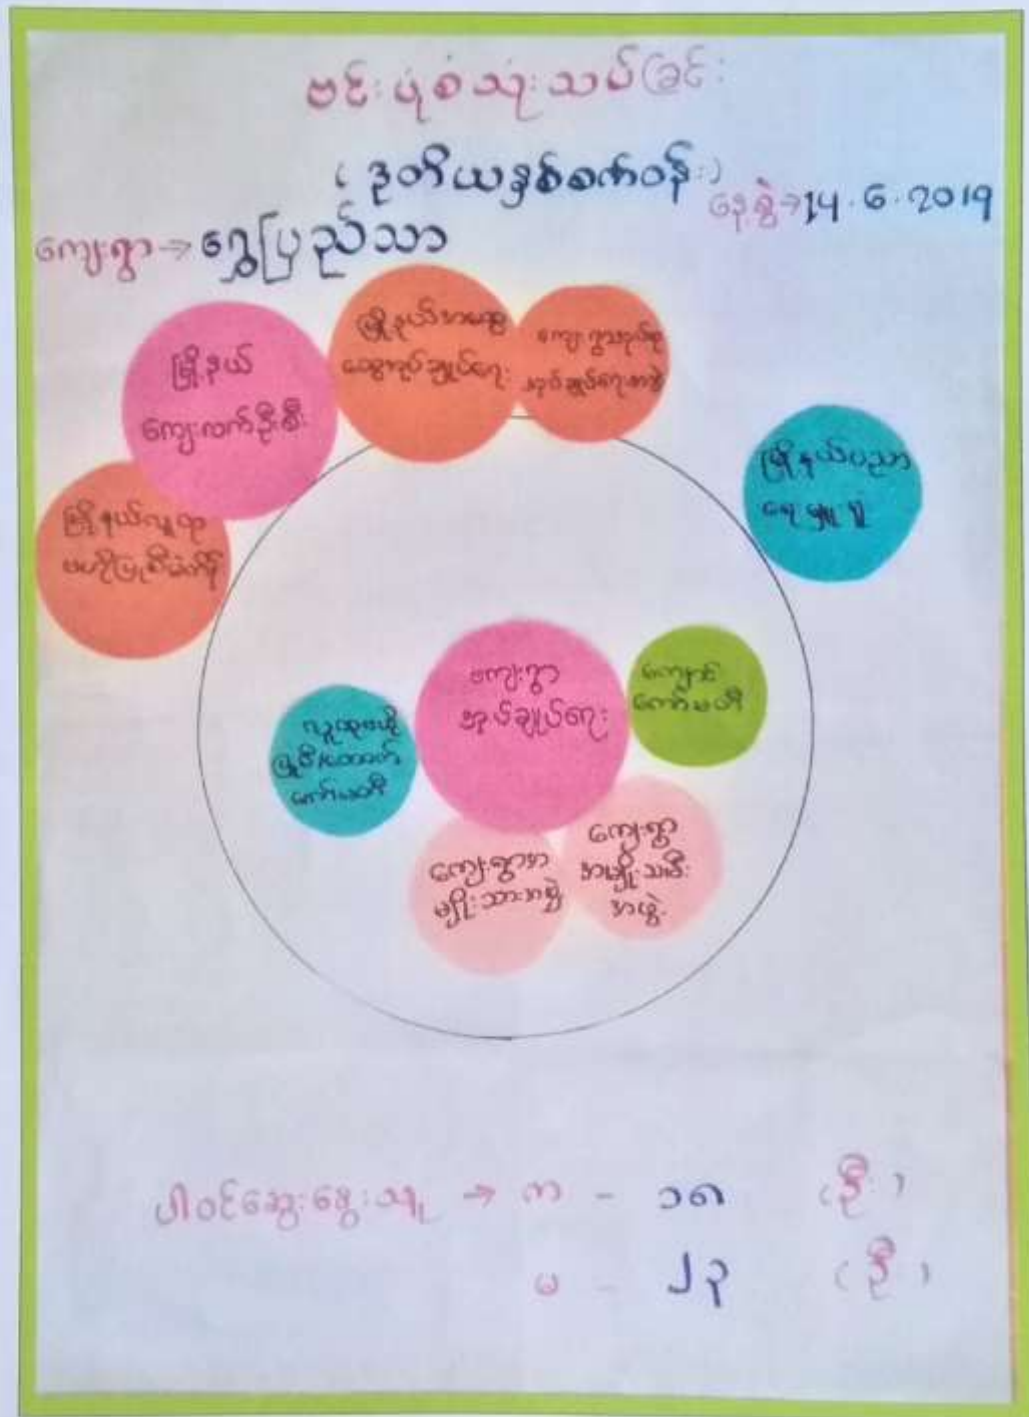 ဗင်းပုံစံသုံးသပ်ခြင်း
(ဒုတိယနှစ်စက်ဝန်း)
နေ့စွဲ→ 14.6.2019
ကျေးရွာ→ ရွှေပြည်သာ
မြို့နယ်အထွေ
ထွေအုပ်ချုပ်ရေး
ကျေးရွာအုပ်စု
အုပ်ချုပ်ရေးအဖွဲ့
မြို့နယ်
ကျေးလက်ဦးစီး
မြို့နယ်ပညာ
ရေးမှူးရုံး
မြို့နယ်လူထု
ဗဟိုပြုစီမံကိန်း
ကျေးရွာ
အုပ်ချုပ်ရေး
ကျောင်း
ကော်မတီ
လူထုဗဟို
ပြုစီ/ထောက်
ကော်မတီ
ကျေးရွာအ
မျိုးသားအဖွဲ့
ကျေးရွာ
အမျိုးသမီး
အဖွဲ့
ပါဝင်ဆွေးနွေးသူ → က - ၁၈ (ဦး)
မ - ၂၃ (ဦး)